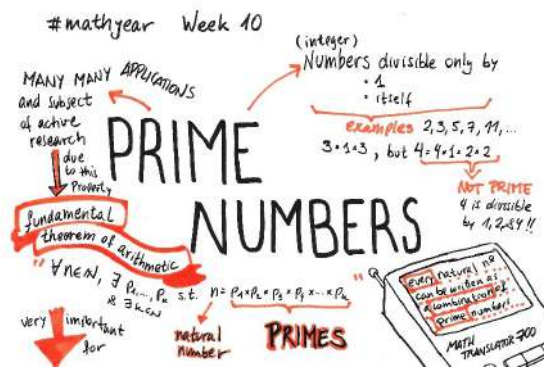 #mathyear Week 10
MANY MANY APPLICATIONS
and subject
of active
research
due
to this
Property
fundamental
theorem of arithmetic
PRIME
NUMBERS
(integer)
Numbers divisible only by
• 1
• itself
examples 2,3,5,7,11,...
3=1×3, but 4=4×1=2×2
NOT PRIME
4 is divisible
by 1,2,&4!!
" ∀n∈ℕ, ∃ P₁,...,Pₖ s.t. n=P₁×P₂×P₃×P₄×...×Pₖ "
& ∃ k∈ℕ
natural
number
PRIMES
very important
for
every natural nº
can be written as
a combination of
prime numbers
MATH
TRANSLATOR 700